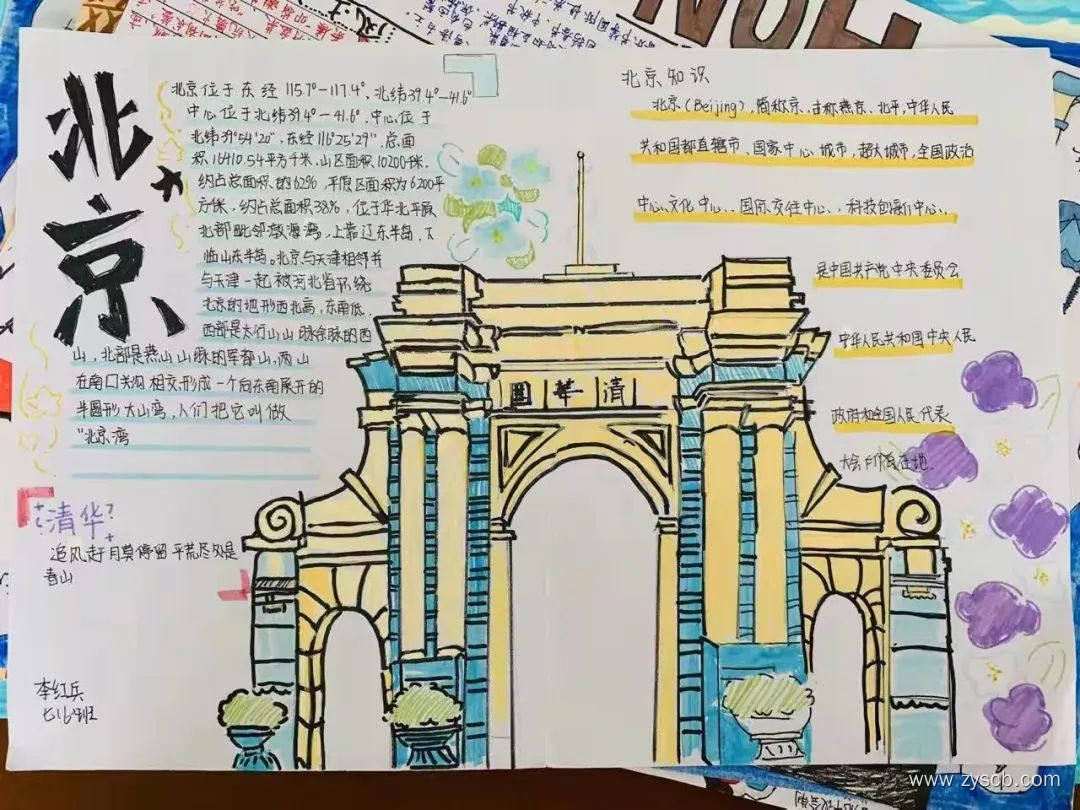 北京
北京位于东经115.7°-117.4°,北纬39.4°-41.6°
中心位于北纬39.4°-41.6°,中心位于
北纬39°54'20",东经116°25'29",总面
积16410.54平方千米,山区面积10200千米,
约占总面积的62%,平原区面积为6200平
方千米,约占总面积38%,位于华北平原
北部毗邻渤海湾,上靠辽东半岛,下
临山东半岛。北京与天津相邻并
与天津一起被河北省环绕
北京的地形西北高,东南低.
西部是太行山山脉余脉的西
山,北部是燕山山脉的军都山,两山
在南口关沟相交,形成一个向东南展开的
半圆形大山湾,人们把它叫做
"北京湾
清华
追风赶月莫停留 平荒尽处是
春山
李红兵
七16班
園華清
北京知识
北京(Beijing),简称京、古称燕京、北平,中华人民
共和国都直辖市、国家中心城市,超大城市,全国政治
中心、文化中心、国际交往中心、科技创新中心、
是中国共产党中央委员会
中华人民共和国中央人民
政府和全国人民代表
大会所在地.
www.zyscb.com